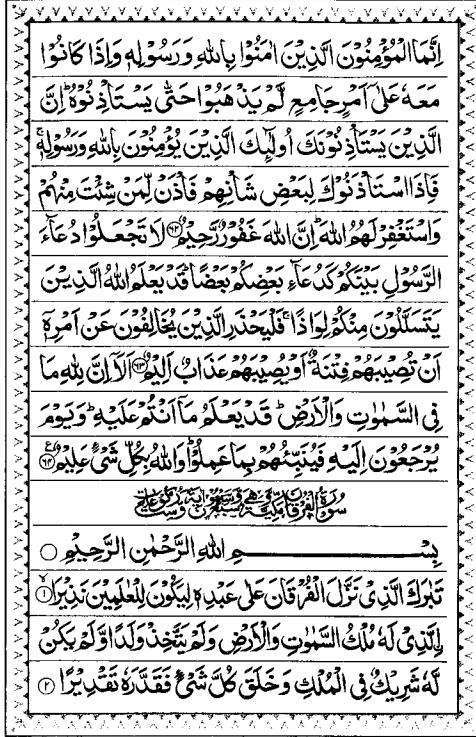 اِنَّمَا الْمُؤْمِنُوْنَ الَّذِيْنَ اٰمَنُوْا بِاللّٰهِ وَرَسُوْلِهٖ وَاِذَا كَانُوْا
مَعَهٗ عَلٰٓى اَمْرٍ جَامِعٍ لَّمْ يَذْهَبُوْا حَتّٰى يَسْتَاْذِنُوْهُ ؕ اِنَّ
الَّذِيْنَ يَسْتَاْذِنُوْنَكَ اُولٰٓئِكَ الَّذِيْنَ يُؤْمِنُوْنَ بِاللّٰهِ وَرَسُوْلِهٖ ۚ
فَاِذَا اسْتَاْذَنُوْكَ لِبَعْضِ شَاْنِهِمْ فَاْذَنْ لِّمَنْ شِئْتَ مِنْهُمْ
وَاسْتَغْفِرْ لَهُمُ اللّٰهَ ؕ اِنَّ اللّٰهَ غَفُوْرٌ رَّحِيْمٌ ﴿۶۲﴾ لَا تَجْعَلُوْا دُعَآءَ
الرَّسُوْلِ بَيْنَكُمْ كَدُعَآءِ بَعْضِكُمْ بَعْضًا ؕ قَدْ يَعْلَمُ اللّٰهُ الَّذِيْنَ
يَتَسَلَّلُوْنَ مِنْكُمْ لِوَاذًا ۚ فَلْيَحْذَرِ الَّذِيْنَ يُخَالِفُوْنَ عَنْ اَمْرِهٖٓ
اَنْ تُصِيْبَهُمْ فِتْنَةٌ اَوْ يُصِيْبَهُمْ عَذَابٌ اَلِيْمٌ ﴿۶۳﴾ اَلَآ اِنَّ لِلّٰهِ مَا
فِى السَّمٰوٰتِ وَالْاَرْضِ ؕ قَدْ يَعْلَمُ مَاۤ اَنْتُمْ عَلَيْهِ ؕ وَيَوْمَ
يُرْجَعُوْنَ اِلَيْهِ فَيُنَبِّئُهُمْ بِمَا عَمِلُوْا ؕ وَاللّٰهُ بِكُلِّ شَىْءٍ عَلِيْمٌ ﴿۶۴﴾ ع
سُوْرَةُ الْفُرْقَانِ مَكِّيَّةٌ وَّهِىَ
بِسْمِ اللّٰهِ الرَّحْمٰنِ الرَّحِيْمِ ○
تَبٰرَكَ الَّذِىْ نَزَّلَ الْفُرْقَانَ عَلٰى عَبْدِهٖ لِيَكُوْنَ لِلْعٰلَمِيْنَ نَذِيْرَا ۙ﴿۱﴾
اِلَّذِىْ لَهٗ مُلْكُ السَّمٰوٰتِ وَالْاَرْضِ وَلَمْ يَتَّخِذْ وَلَدًا وَّلَمْ يَكُنْ
لَّهٗ شَرِيْكٌ فِى الْمُلْكِ وَخَلَقَ كُلَّ شَىْءٍ فَقَدَّرَهٗ تَقْدِيْرًا ﴿۲﴾